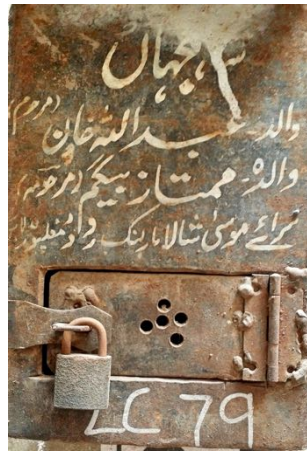 شاہجہاں
والد عبداللہ خان (مرحوم)
والدہ ممتاز بیگم (مرحومہ)
برائے موسیٰ شالامار لنک روڈ مغلپورہ لاہور
LC 79